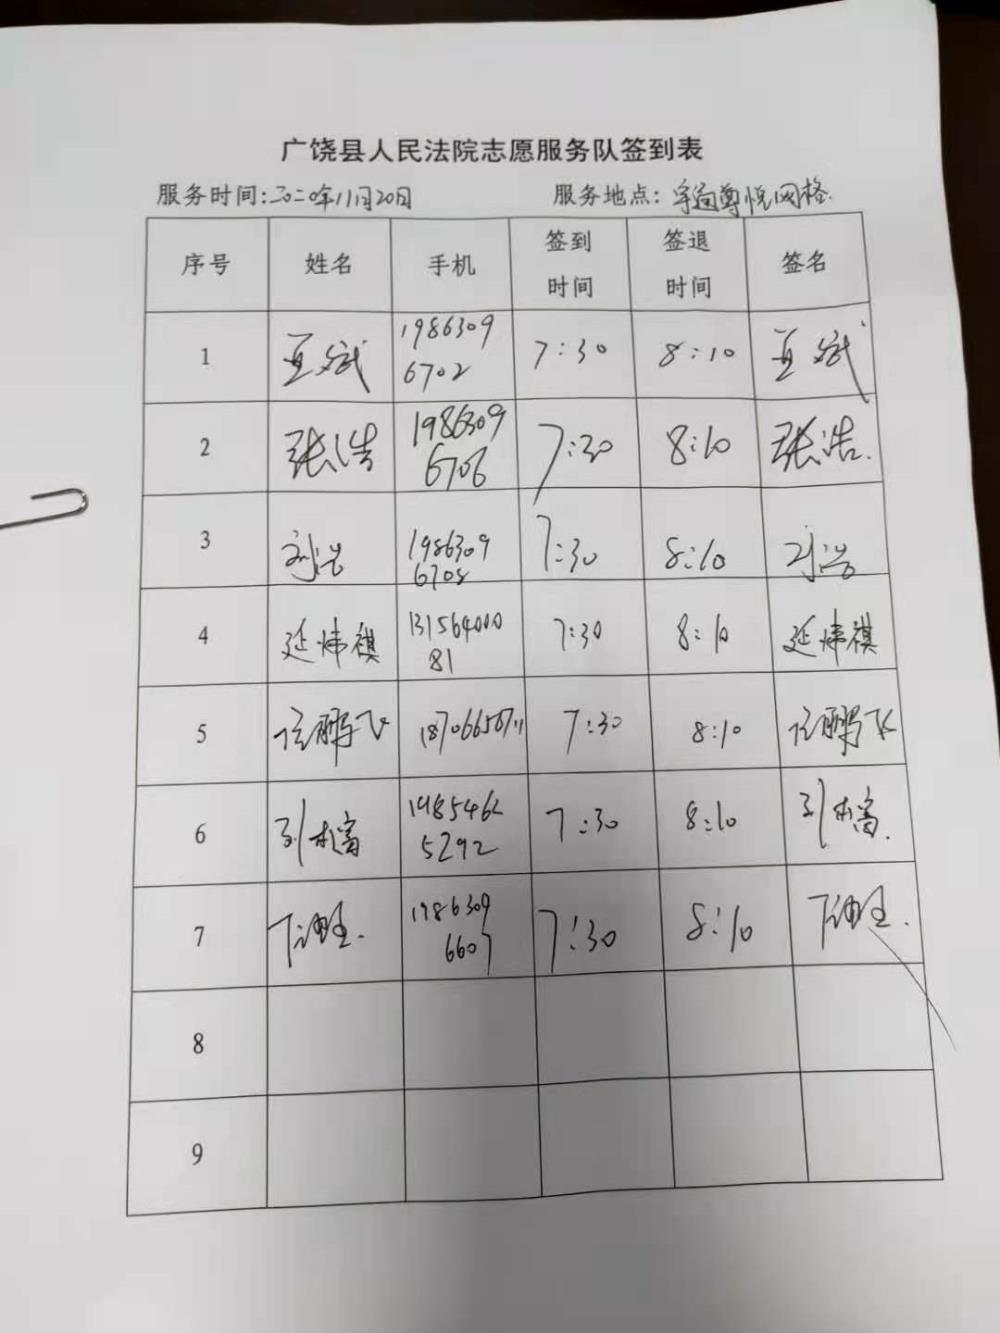 广饶县人民法院志愿服务队签到表
服务时间:二〇二〇年11月20日 服务地点: 尊悦网格.
序号 姓名 手机 签到时间 签退时间 签名
1 王斌 1986309 6702 7:30 8:10 王斌
2 张浩 1986309 6706 7:30 8:10 张浩.
3 刘浩 1986309 6708 7:30 8:10 刘浩
4 延炜祺 131564000 81 7:30 8:10 延炜祺
5 鹏飞 7:30 8:10 鹏飞
6 5292 7:30 8:10
7 1986309 6607 7:30 8:10
8
9